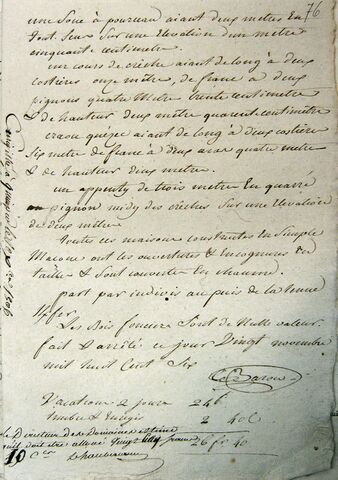 76
une Soue à pourceau aiant deux metres En
tout Sens Sur une Elevation d'un metre
cinquante centimetre.
un cours de crêche aiant de long à deux
costieres onze mêtre, de franc à deux
pignons quatre Metre trente centimetre
& de hauteur deux mêtre quarent centimêtre
aiant de long à deux costiere
Six metre de franc à deux quatre metre
& de hauteur deux metre.
un appenty de trois metre En quarré
pignon midy des crêches Sur une Elevation
de deux mêtre
toutes ces maisons construites En Simple
Macone ont les ouvertures & Encognures En
taille & Sont couverte En chaume.
part par indivis au puis de la tenue
Les Bois fonciers Sont de Nulle valeur.
fait & arrêté ce jour Vingt novembre
mil huit Cent Six
Vacations 2 jours 24
timbre & Enregis 2 40
26 fr 40
Le Directeur des Domaines estime
qu'il doit etre alloué Vingt francs
19